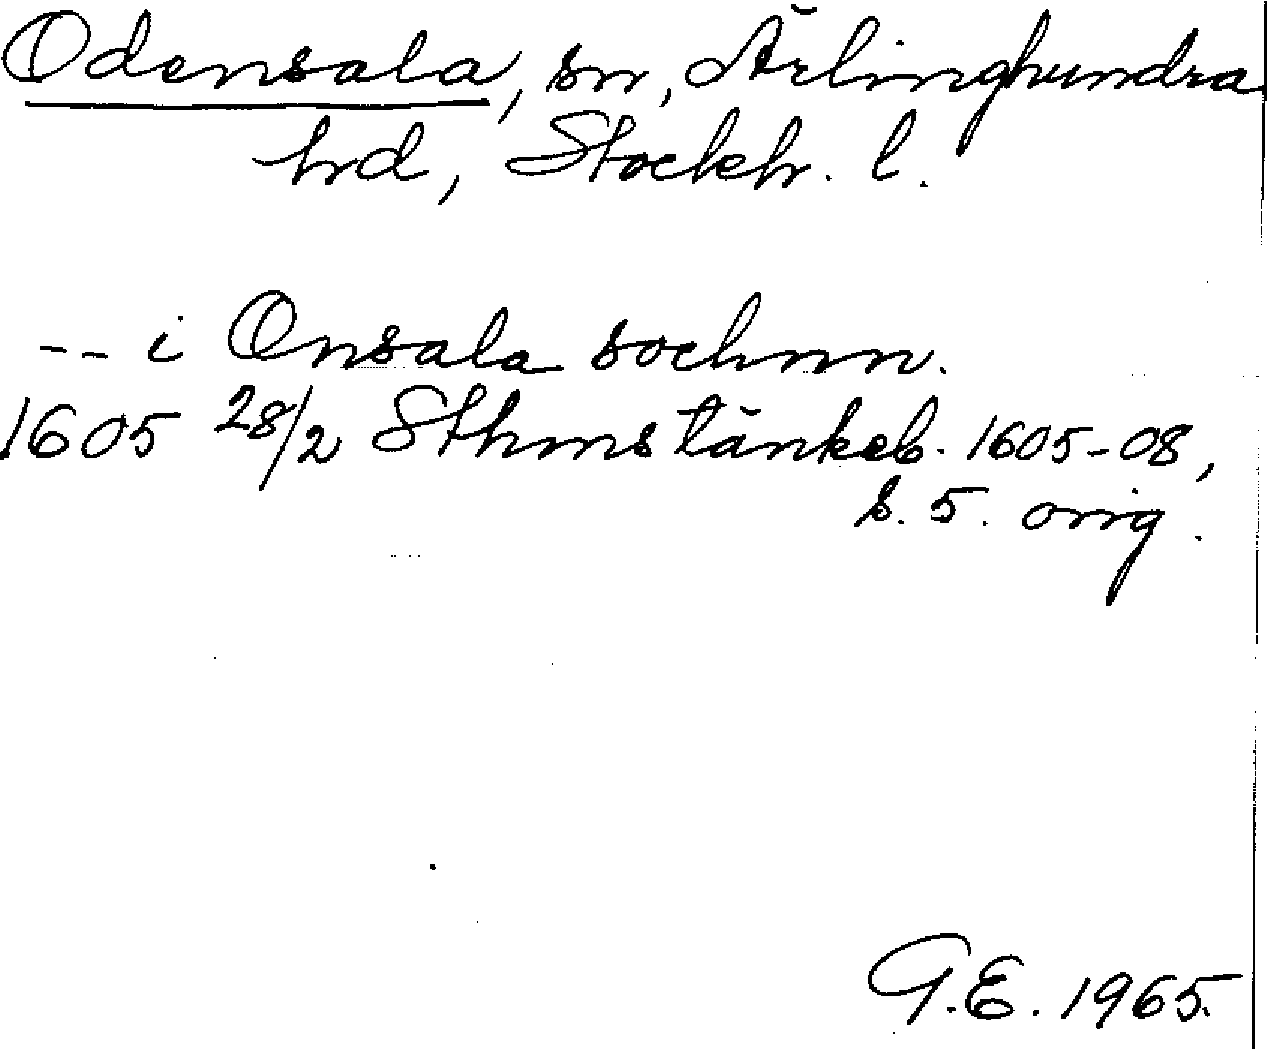 Odensala, sn, Ärlinghundra
hd, Stockh. l.
-- i Onsala sochnn.
1605 28/2 Sthms tänkeb. 1605-08,
s. 5. orig.
G.E. 1965.